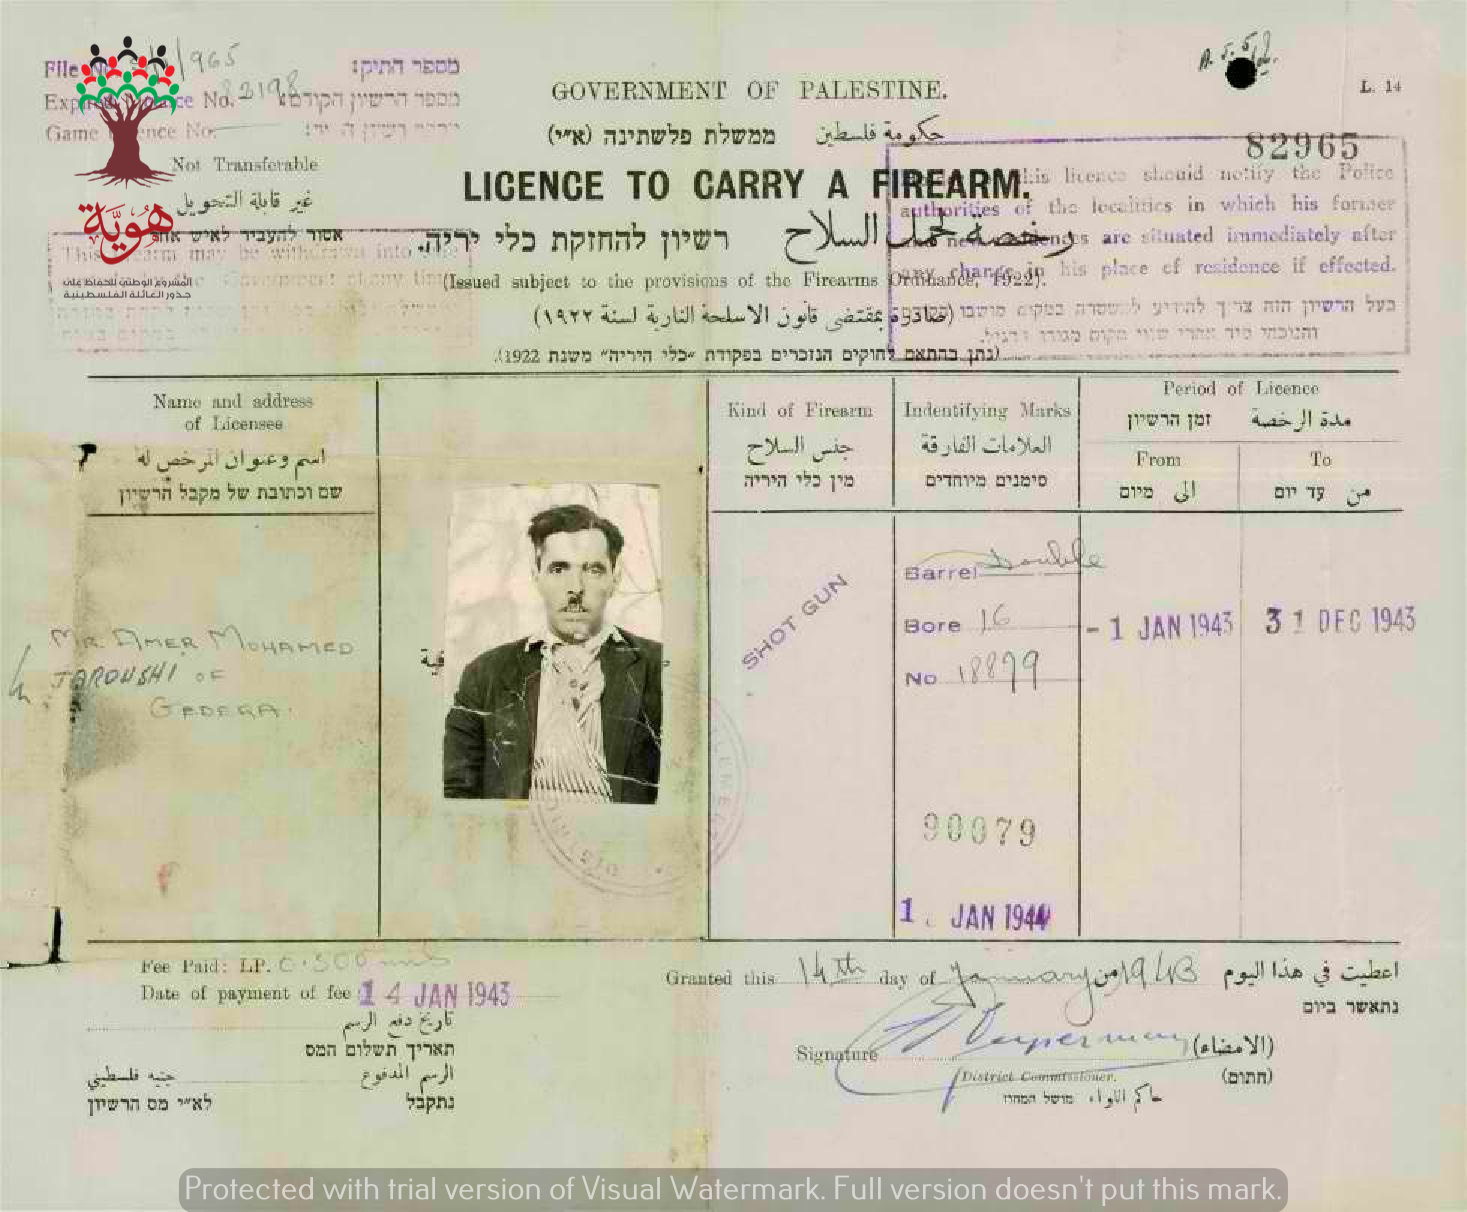 File No. /965
מספר התיק:
Expired Licence No. 82198
מספר הרשיון הקודם:
Game Licence No.
Not Transferable
غير قابلة التحويل
אסור להעביר לאיש אחר
هُويّة
المشروع الوطني للحفاظ على
جذور العائلة الفلسطينية
This firearm may be withdrawn into
Government at any time
GOVERNMENT OF PALESTINE.
ממשלת פלשתינה (א״י) حكومة فلسطين
L. 14
82965
LICENCE TO CARRY A FIREARM.
רשיון להחזקת כלי יריה. رخصة لحمل السلاح
(Issued subject to the provisions of the Firearms Ordinance, 1922).
(صادرة بمقتضى قانون الاسلحة النارية لسنة ١٩٢٢)
(נתן בהתאם לחוקים הנזכרים בפקודת "כלי היריה" משנת 1922).
this licence should notify the Police
authorities of the localities in which his former
and new residences are situated immediately after
any change in his place of residence if effected.
בעל הרשיון הזה צריך להודיע למשטרה במקום מושבו
Name and address
of Licensee
اسم وعنوان المرخص له
שם וכתובת של מקבל הרשיון
Kind of Firearm
جنس السلاح
מין כלי היריה
Indentifying Marks
العلامات الفارقة
סימנים מיוחדים
Period of Licence
זמן הרשיון مدة الرخصة
From
מיום الى
To
עד יום من
MR. AMER MOHAMED
JAROUSHI OF
GEDERA.
SHOT GUN
Barrel Double
Bore 16
No 18899
- 1 JAN 1943
31 DEC 1943
90079
1. JAN 1944
Fee Paid: LP. 0.500 mils
Date of payment of fee 14 JAN 1943
تاريخ دفع الرسم
תאריך תשלום המס
جنيه فلسطيني الرسم المدفوع
לא״י מס הרשיון נתקבל
Granted this 14th day of January 1943 من اعطيت في هذا اليوم
נתאשר ביום
Signature (الامضاء)
District Commissioner. (חתום)
حاكم اللواء מושל המחוז
Protected with trial version of Visual Watermark. Full version doesn't put this mark.